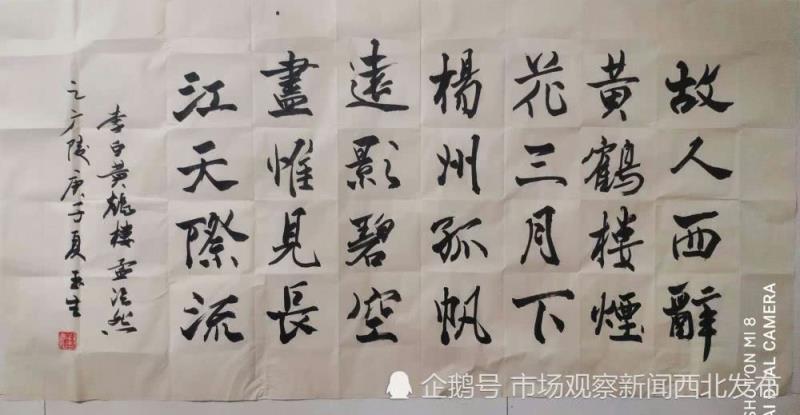 故人西辭
黄鶴樓煙
花三月下
楊州孤帆
遠影碧空
盡惟見長
江天際流
李白黄鶴樓孟浩然
之广陵庚子夏玉生
企鹅号 市场观察新闻西北发布
SHOT ON MI 8
AI DUAL CAMERA